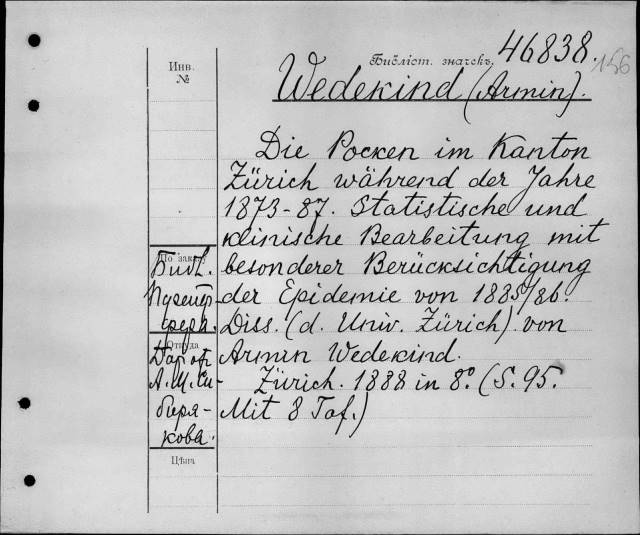 Инв. №
Библіот. значекъ. 46838.
156
Wedekind (Armin).
Die Pocken im Kanton
Zürich während der Jahre
1873-87. Statistische und
klinische Bearbeitung mit
besonderer Berücksichtigung
der Epidemie von 1885/86.
Diss. (d. Univ. Zürich) von
Armin Wedekind.
Zürich. 1888 in 8º. (S. 95.
Mit 8 Taf.)
По заказу
Библ.
Откуда
Даръ отъ
А. М. Си-
биря-
кова.
Цѣна